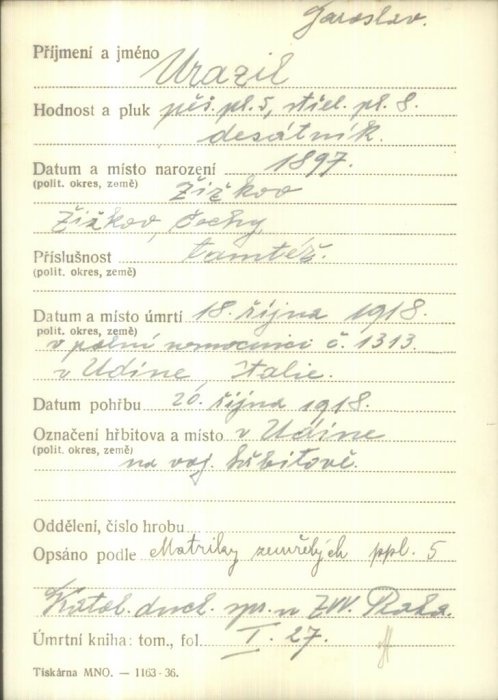 Jaroslav.
Příjmení a jméno Urazil
Hodnost a pluk pěš. pl. 5, střel. pl. 8.
desátník.
Datum a místo narození 1897.
(polit. okres, země) Žižkov
Žižkov, Čechy,
Příslušnost tamtéž.
(polit. okres, země)
Datum a místo úmrtí 18. října 1918.
(polit. okres, země)
v polní nemocnici č. 1313
v Udine, Italie.
Datum pohřbu 20. října 1918.
Označení hřbitova a místo v Udine
(polit. okres, země)
na voj. hřbitově.
Oddělení, číslo hrobu
Opsáno podle Matriky zemřelých ppl. 5
Katol. duch. spr. u ZVV. Praha.
Úmrtní kniha: tom., fol. I. 27.
Tiskárna MNO. — 1163-36.